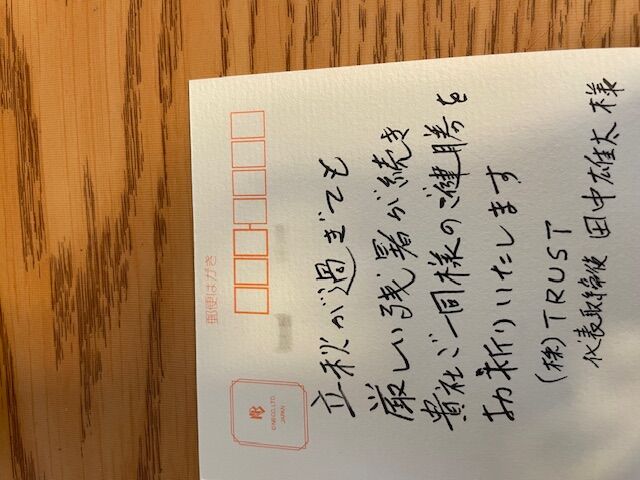 郵便はがき
©NB CO.,LTD.
JAPAN
立秋が過ぎても
厳しい残暑が続き
貴社ご一同様のご健勝を
お祈りいたします
(株)TRUST
代表取締役 田中雄太 様